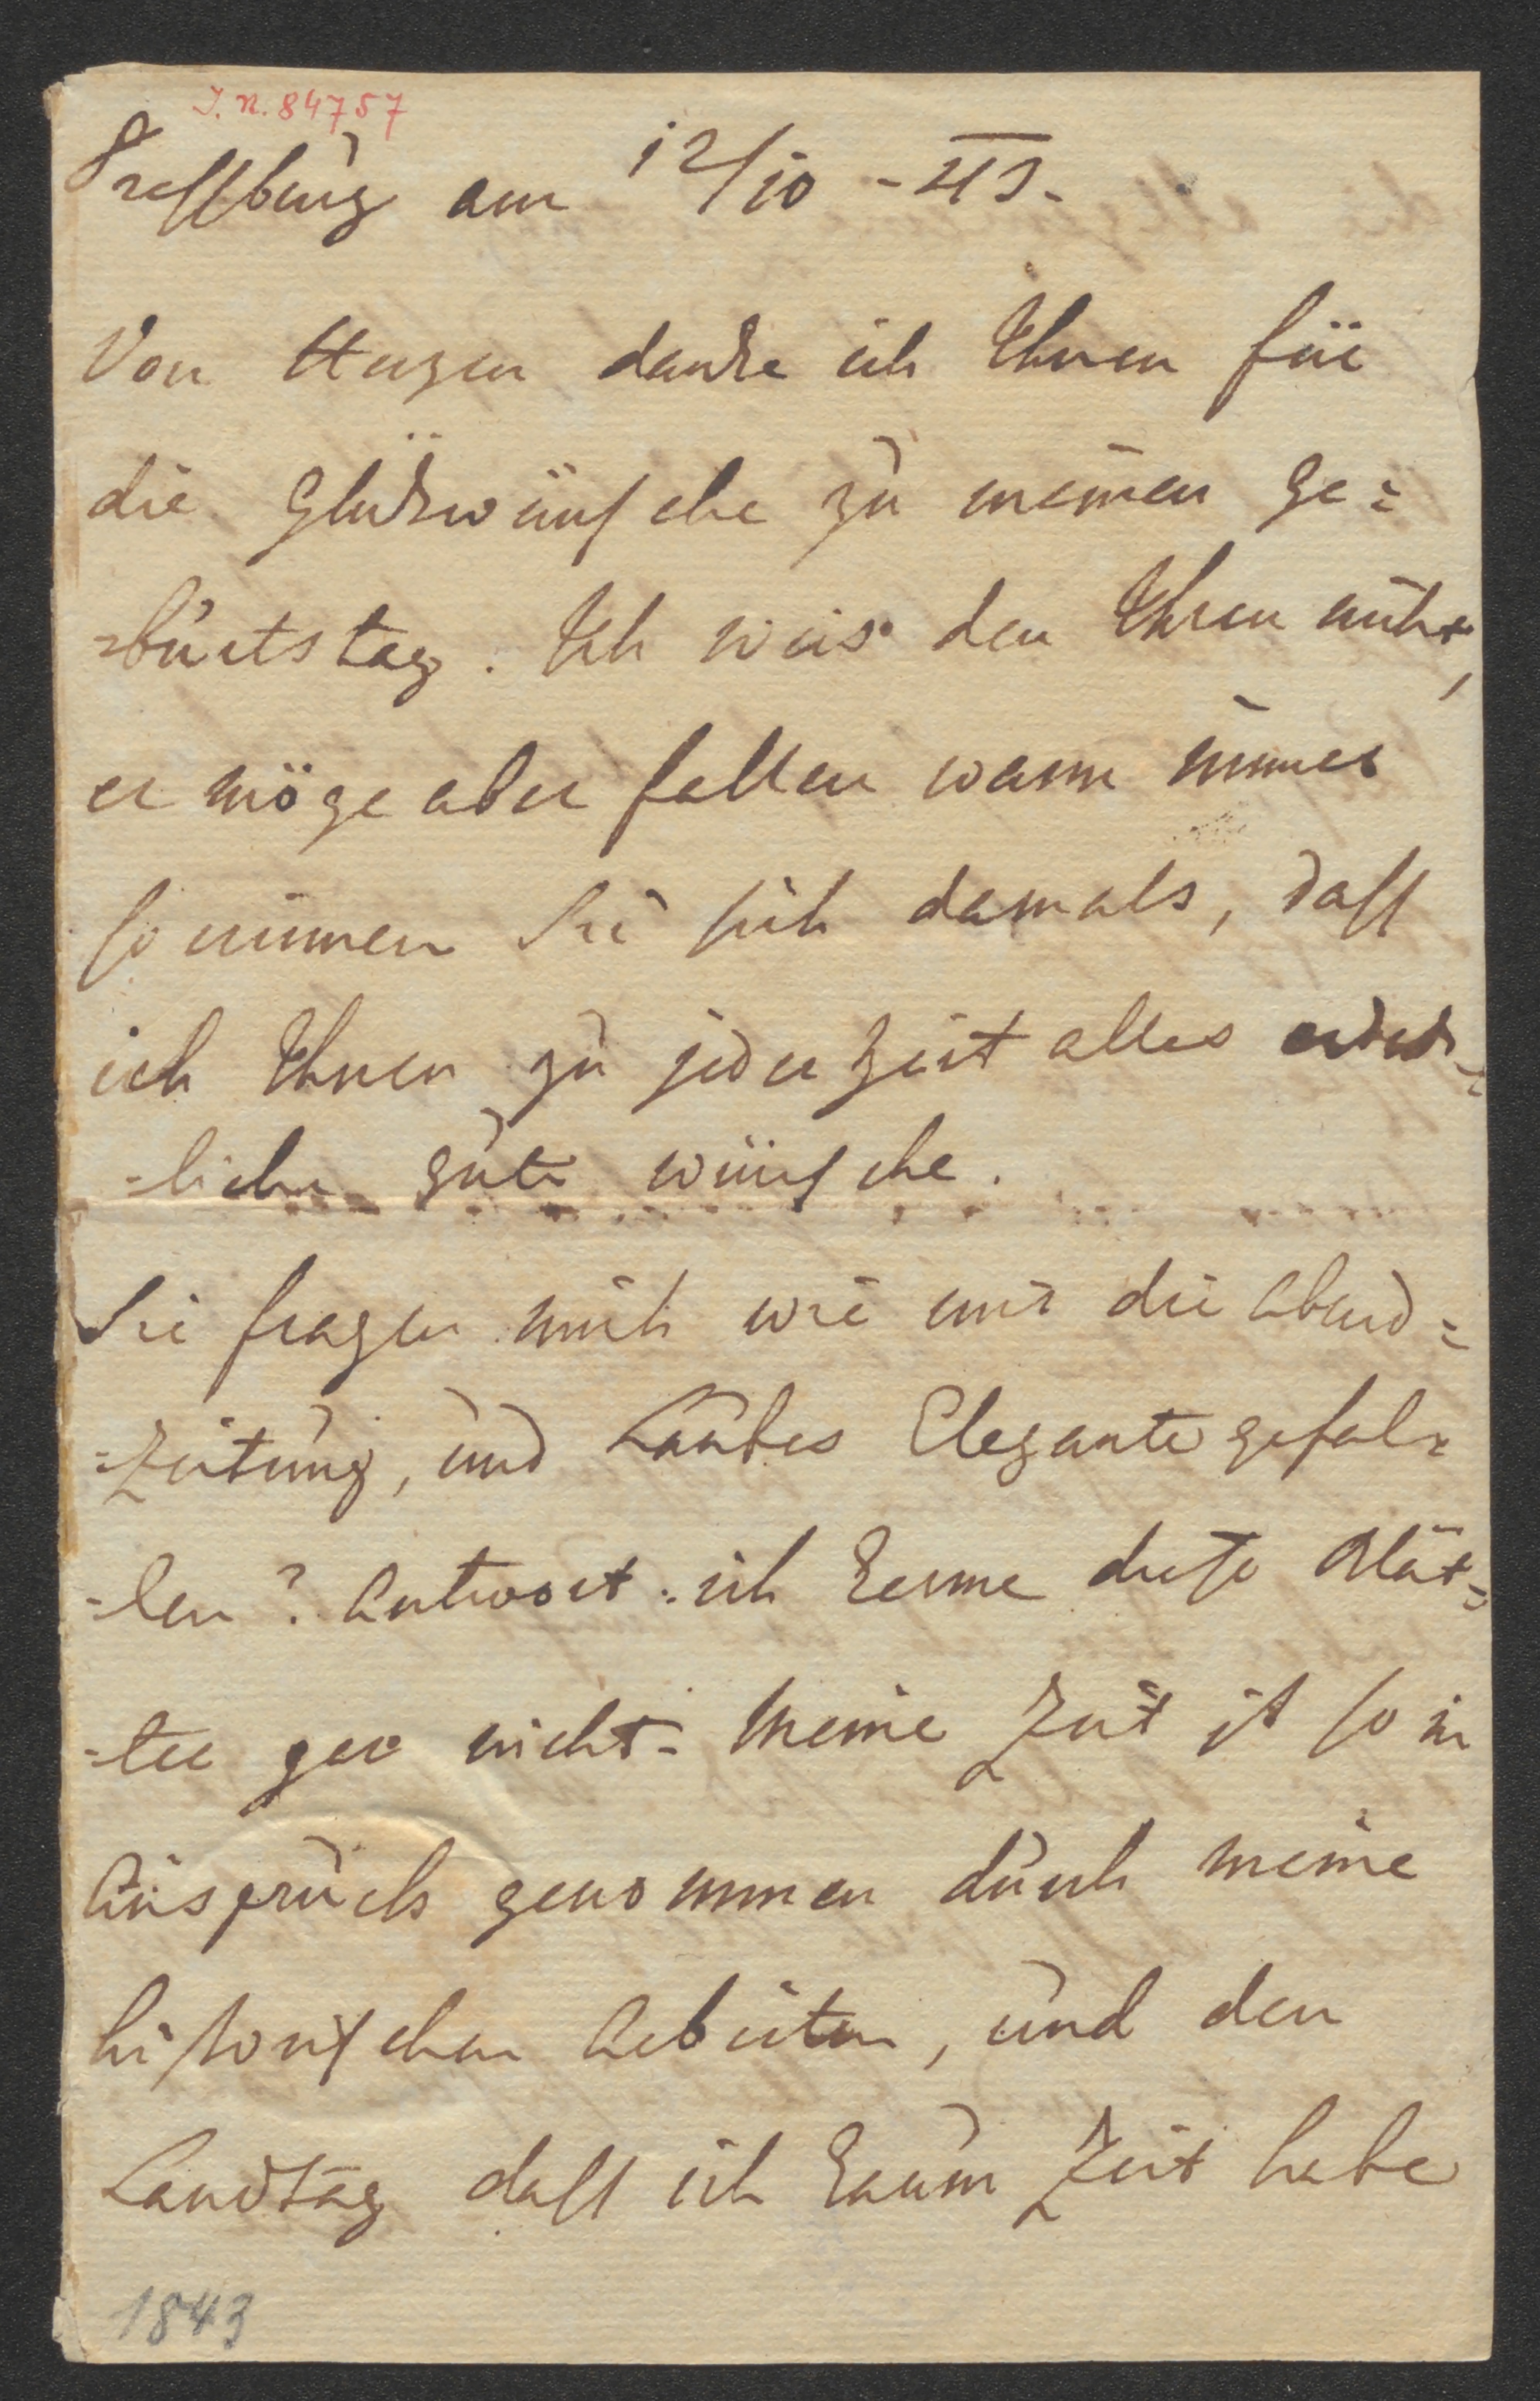 I. N. 84757
Pressburg am 12/10 - 43.
Von Herzen danke ich Ihnen für
die Glückwünsche zu meinen Ge=
=burtstag. Ich weis den Ihren nicht,
er möge aber fallen wann immer
so erinnern Sie sich damals, dass
ich Ihnen zu jeder Zeit alles erdenk=
=liche gute wünsche.
Sie fragen mich wie mir die Abend=
=Zeitung, und Laubes Elegante gefal=
=len? Antwort: ich kenne diese Blät=
=ter gar nicht. Meine Zeit ist so in
Anspruch genommen durch meine
historischen Arbeiten, und den
Landtag dass ich kaum Zeit habe
1843